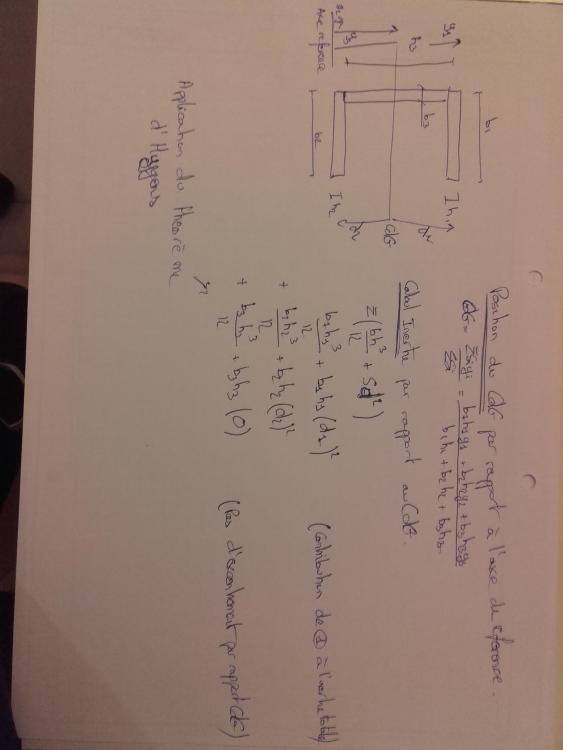 Position du CdG par rapport à l'axe de reference.
CdG = ΣSiyi / ΣSi = b1h1y1 + b2h2y2 + b3h3y3 / b1h1 + b2h2 + b3h3
Calcul Inertie par rapport au CdG.
Σ(bh³/12 + Sd²)
b1h1³/12 + b1h1(d1)² (Contribution de ① à l'inertie totale)
+ b2h2³/12 + b2h2(d2)²
+ b3h3³/12 + b3h3(0) (Pas d'excentrement par rapport CdG)
Application du théorème
d'Huygens
b1
y1
h1
d1
h3
b3
CdG
y3
y2
d2
h2
b2
Axe reference